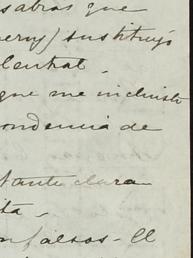 sabras que
eruy) sustituyó
lenhat.
que me incluiste
ondencia de
tante clara
ta -
n falsos - El